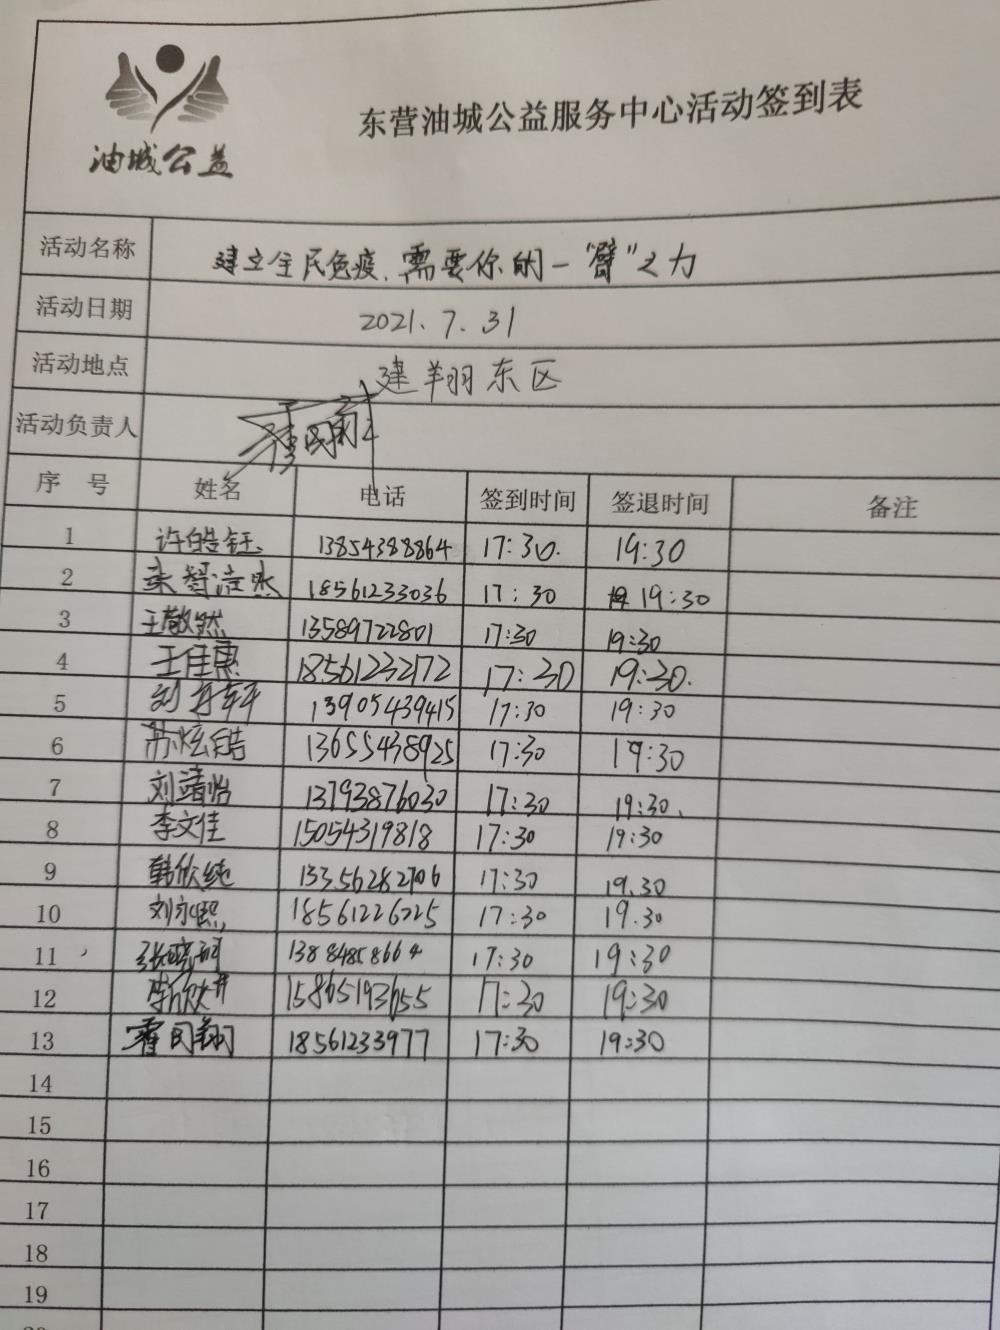 油城公益
东营油城公益服务中心活动签到表
活动名称 建立全民免疫，需要你的一“臂”之力
活动日期 2021.7.31
活动地点 建翔东区
活动负责人
序号 姓名 电话 签到时间 签退时间 备注
1 许皓钰 13854388864 17:30. 19:30
2 18561233036 17:30 19:30
3 王敬然 13589722801 17:30 19:30
4 王佳惠 18561232172 17:30 19:30.
5 13905439415 17:30 19:30
6 苏炫皓 13655438925 17:30 19:30
7 刘靖怡 13793876030 17:30 19:30.
8 李文佳 15054319818 17:30 19:30
9 韩欣纯 13356282706 17:30 19.30
10 刘永熙 18561226225 17:30 19.30
11 13884858664 17:30 19:30
12 15865193655 17:30 19:30
13 18561233977 17:30 19:30
14
15
16
17
18
19